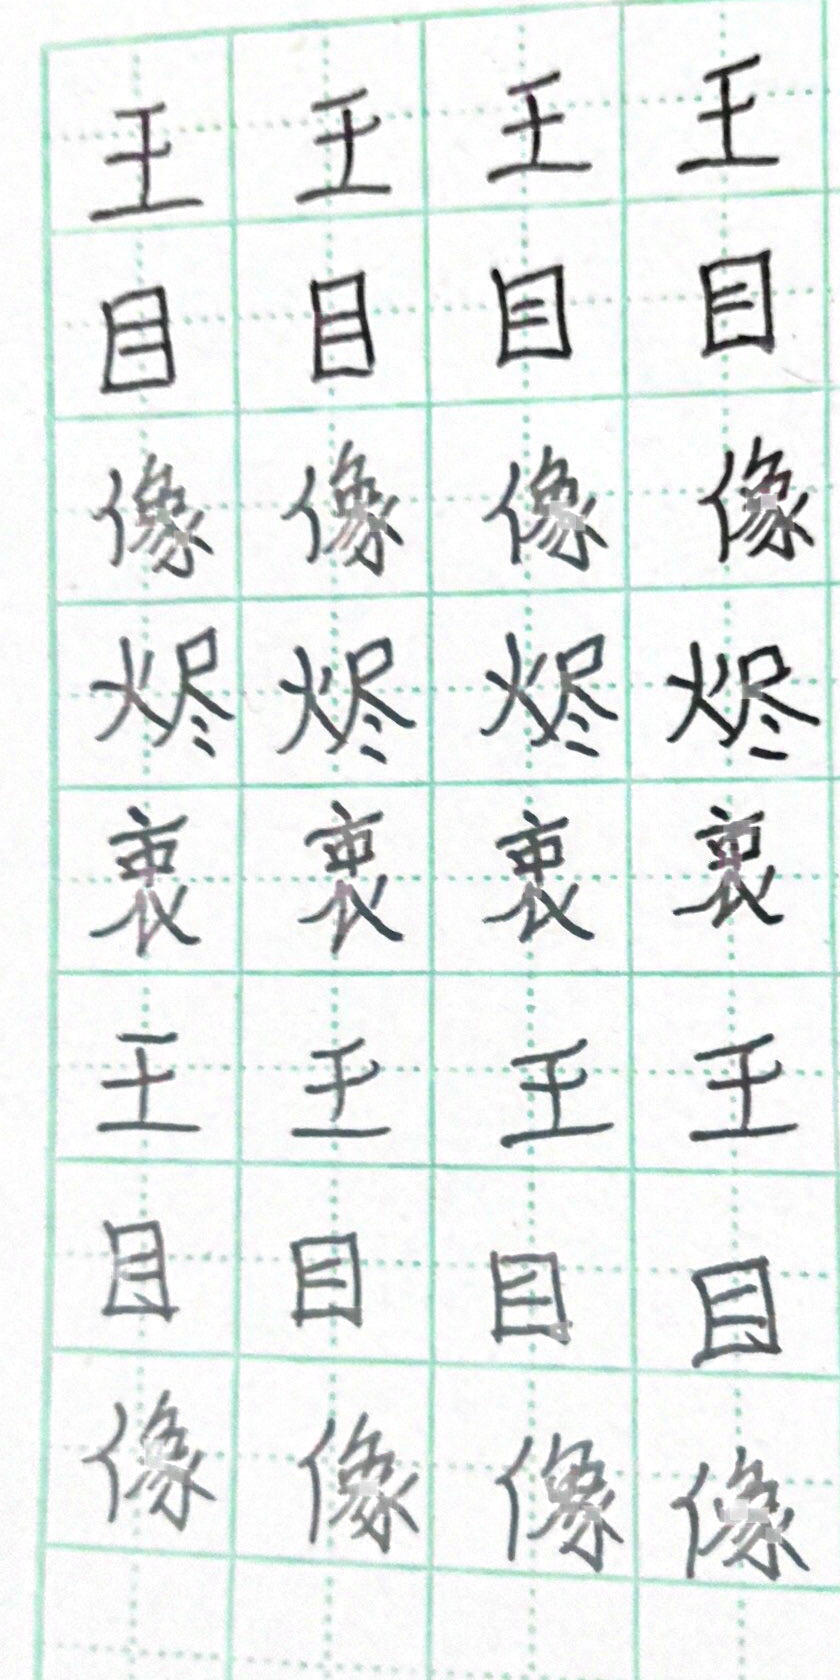 王王王王
目目目目
像像像像
烬烬烬烬
衷衷衷衷
王王王王
目目目目
像像像像